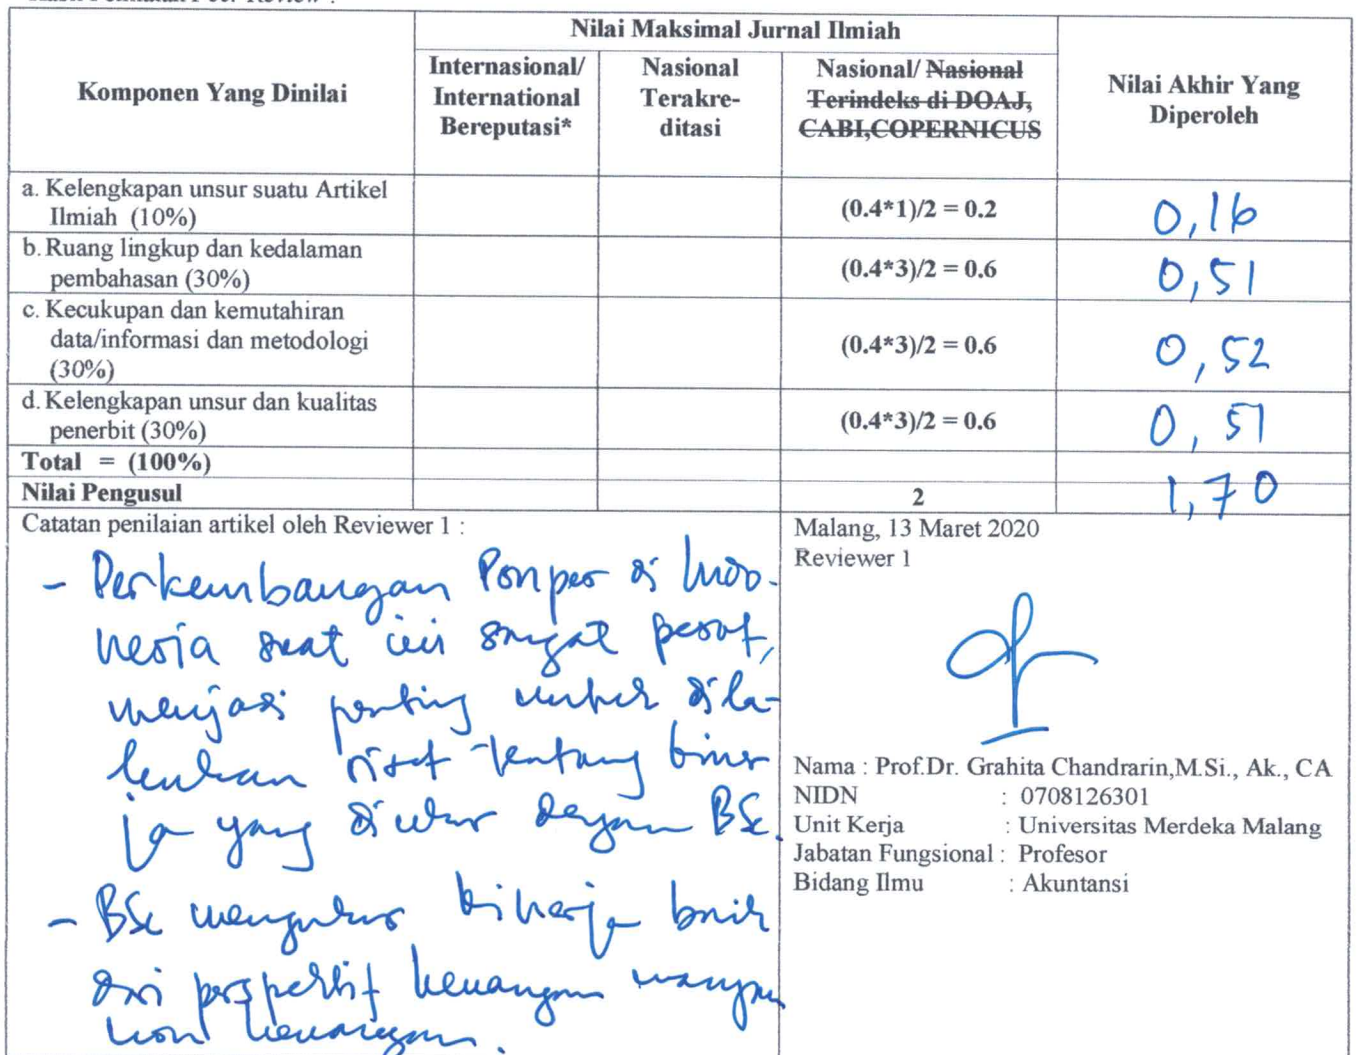 Nilai Maksimal Jurnal Ilmiah
Komponen Yang Dinilai
Internasional/
International
Bereputasi*
Nasional
Terakre-
ditasi
Nasional/ Nasional
Terindeks di DOAJ,
CABI,COPERNICUS
Nilai Akhir Yang
Diperoleh
a. Kelengkapan unsur suatu Artikel
Ilmiah (10%)
(0.4*1)/2 = 0.2
0,16
b. Ruang lingkup dan kedalaman
pembahasan (30%)
(0.4*3)/2 = 0.6
0,51
c. Kecukupan dan kemutahiran
data/informasi dan metodologi
(30%)
(0.4*3)/2 = 0.6
0,52
d. Kelengkapan unsur dan kualitas
penerbit (30%)
(0.4*3)/2 = 0.6
0,51
Total = (100%)
Nilai Pengusul
2
1,70
Catatan penilaian artikel oleh Reviewer 1 :
- Perkembangan Ponpes di Indo-
nesia saat ini sangat pesat,
menjadi penting untuk dila-
kukan riset tentang kiner
ja yang diukur dengan BSc.
- BSc mengukur kinerja baik
dari perspektif keuangan maupun
non keuangan.
Malang, 13 Maret 2020
Reviewer 1
Nama : Prof.Dr. Grahita Chandrarin,M.Si., Ak., CA
NIDN : 0708126301
Unit Kerja : Universitas Merdeka Malang
Jabatan Fungsional : Profesor
Bidang Ilmu : Akuntansi